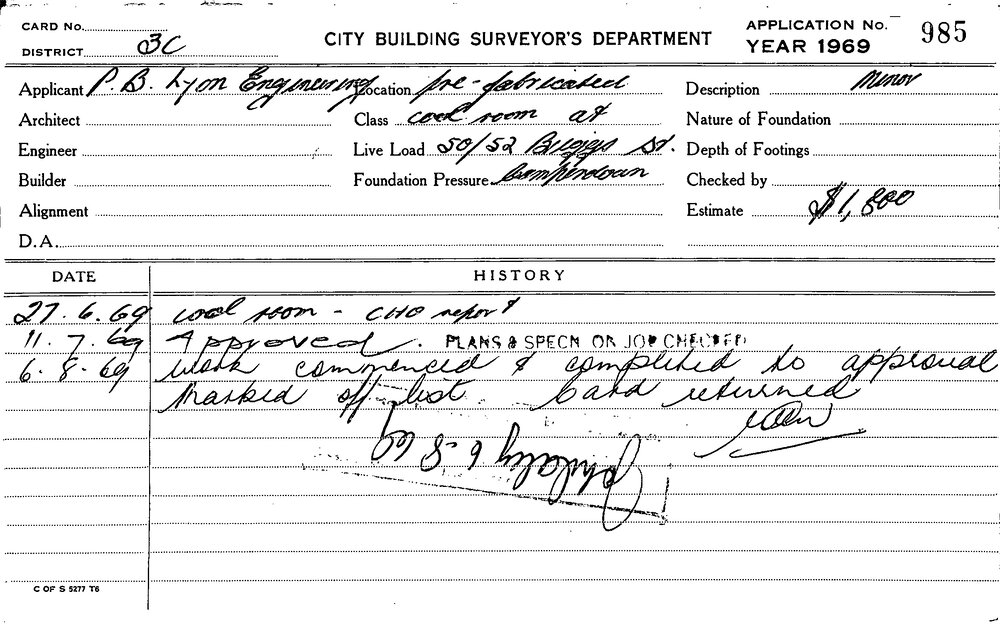 CARD No.
APPLICATION No. 985
DISTRICT 3C
CITY BUILDING SURVEYOR'S DEPARTMENT
YEAR 1969
Applicant P. B. Lyon Engineering Location pre-fabricated Description Minor
Architect Class cool room at Nature of Foundation
Engineer Live Load 50/52 Briggs St. Depth of Footings
Builder Foundation Pressure Camperdown Checked by
Alignment Estimate $1,800
D.A.
DATE HISTORY
27.6.69 cool room - CHO report
11.7.69 Approved. PLANS & SPECN ON JOB CHECKED
6.8.69 Work commenced & completed to approval
Marked off list Card returned
6-8-69
C OF S 5277 T6